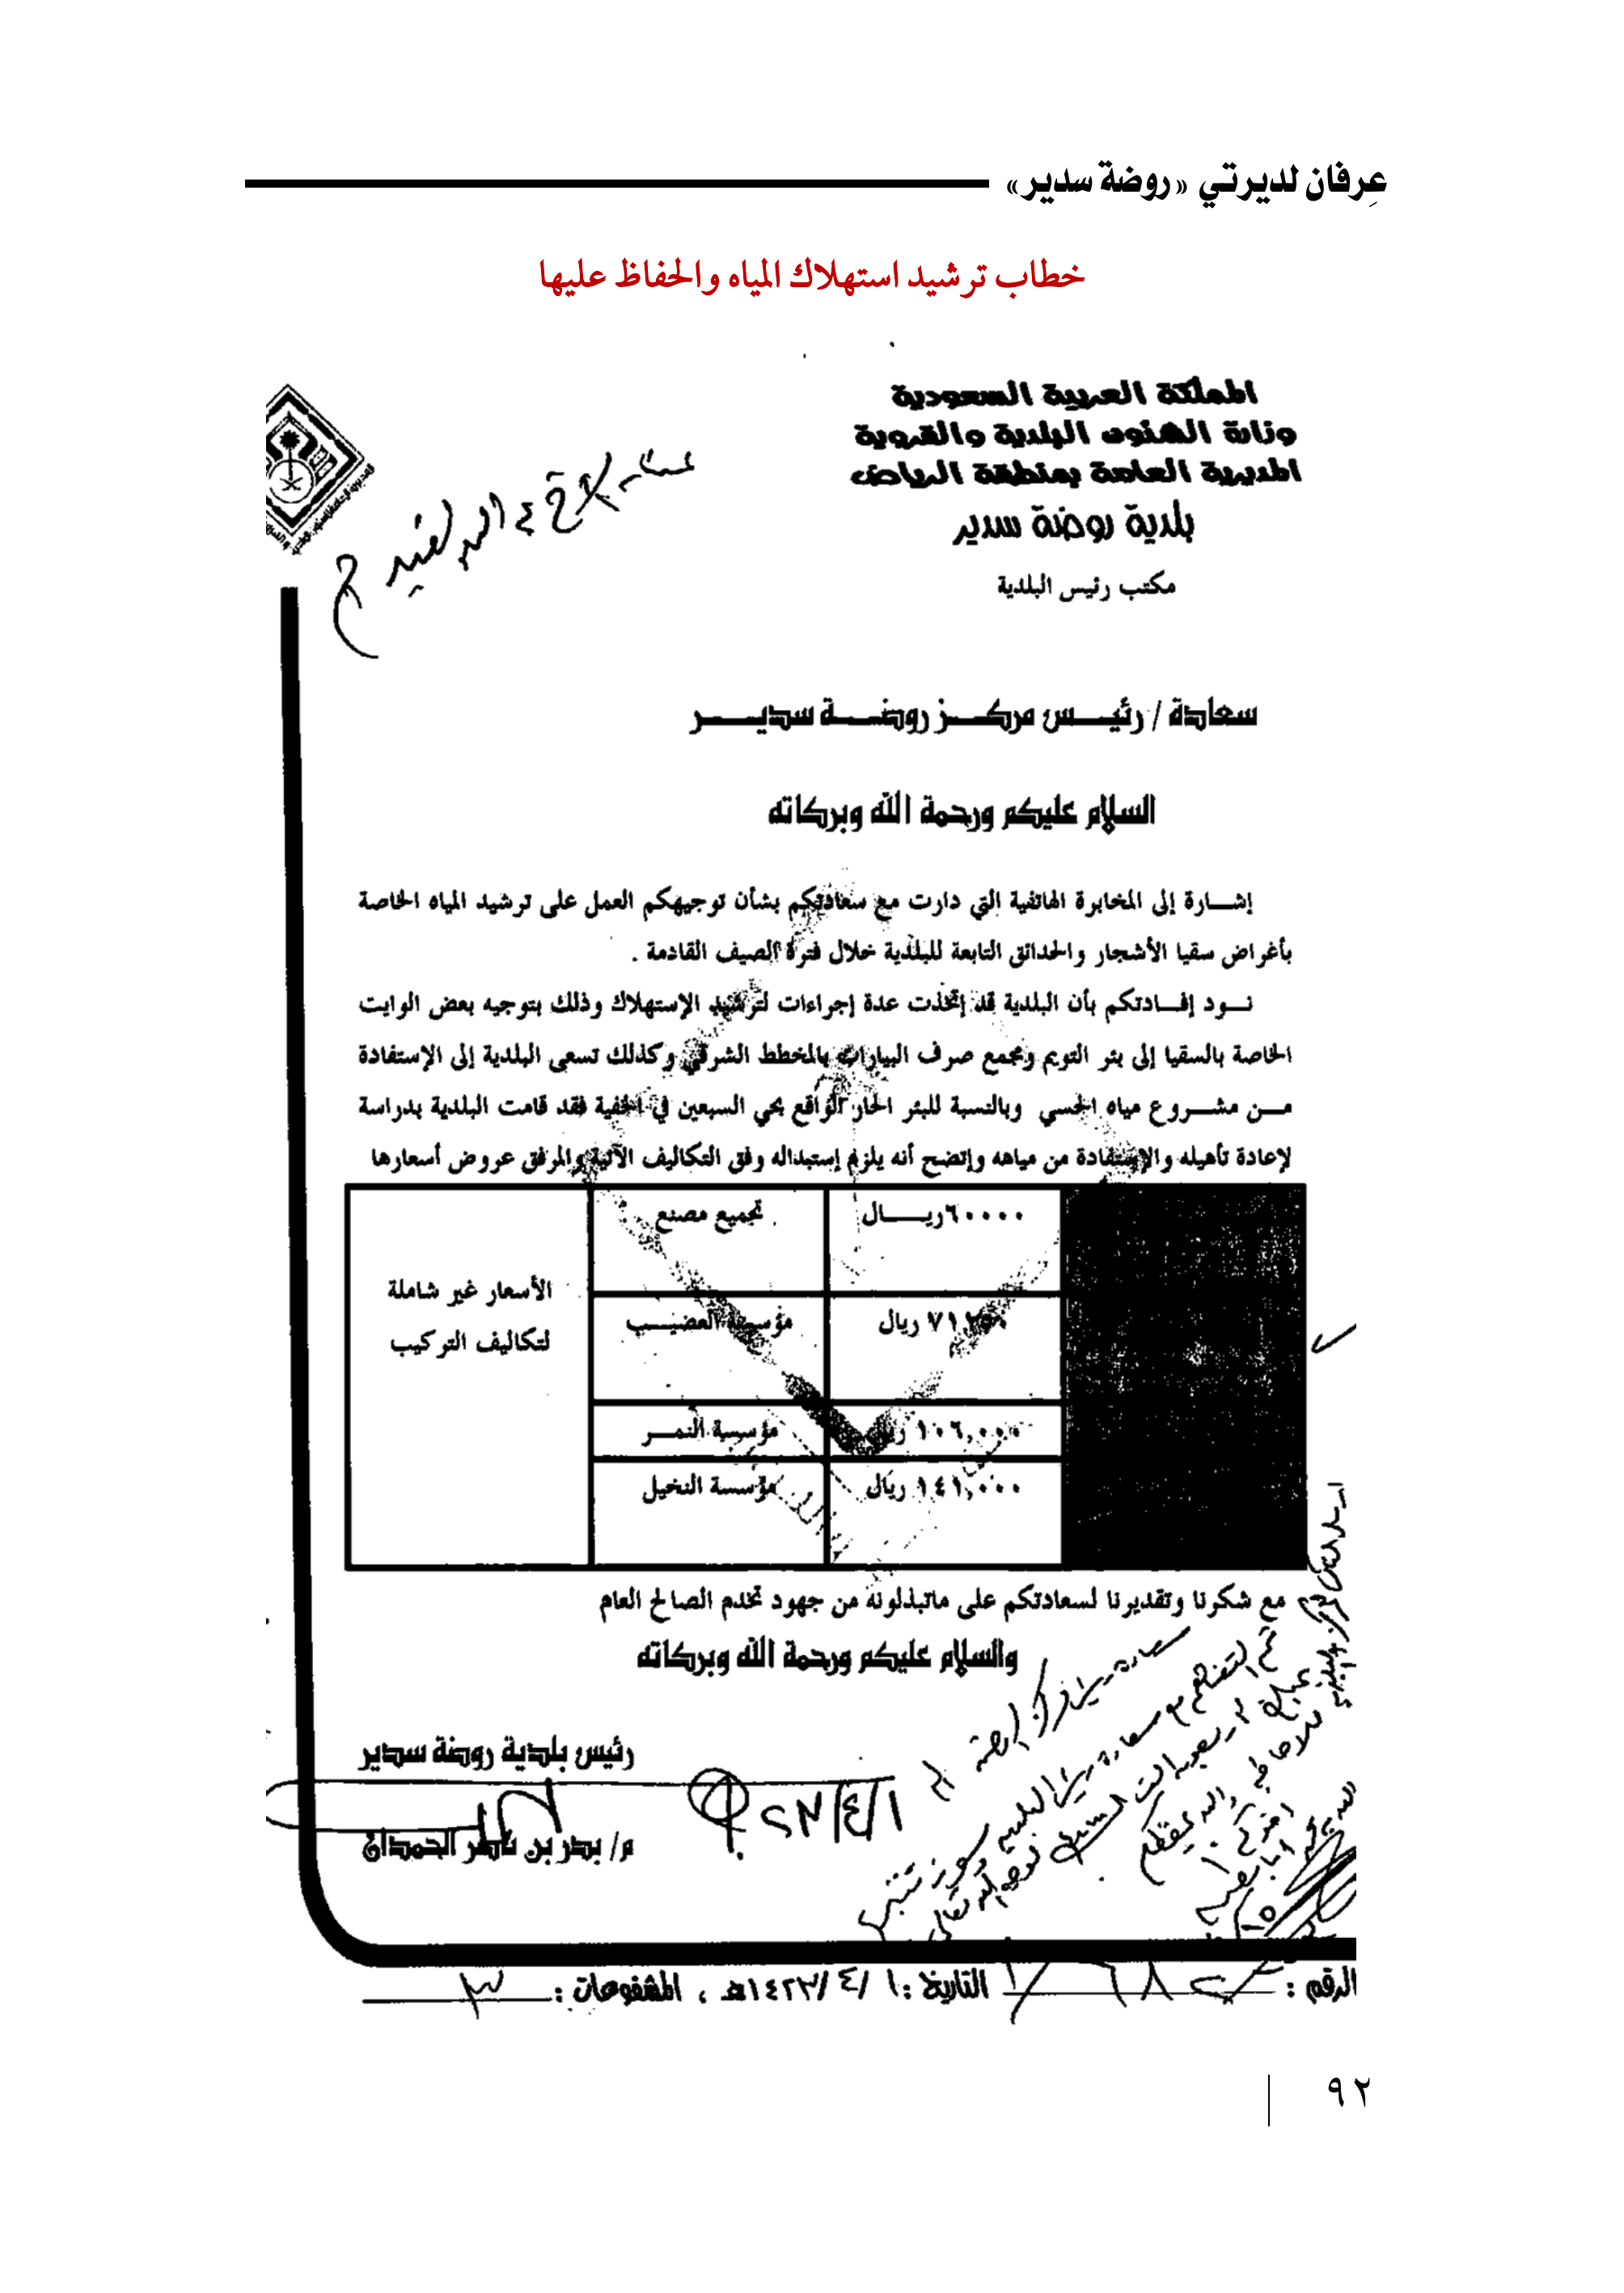 عِرفان لديرتي «روضة سدير»
خطاب ترشيد استهلاك المياه والحفاظ عليها
المملكة العربية السعودية
وزارة الشئون البلدية والقروية
المديرية العامة بمنطقة الرياض
بلدية روضة سدير
مكتب رئيس البلدية
سعادة / رئيس مركز روضة سدير
السلام عليكم ورحمة الله وبركاته
إشارة إلى المخابرة الهاتفية التي دارت مع سعادتكم بشأن توجيهكم العمل على ترشيد المياه الخاصة
بأغراض سقيا الأشجار والحدائق التابعة للبلدية خلال فترة الصيف القادمة .
نود إفادتكم بأن البلدية قد إتخذت عدة إجراءات لترشيد الإستهلاك وذلك بتوجيه بعض الوايت
الخاصة بالسقيا إلى بئر التويم ومجمع صرف البيارات بالمخطط الشرقي وكذلك تسعى البلدية إلى الإستفادة
من مشروع مياه الحسي وبالنسبة للبئر الحار الواقع بحي السبعين في الخفية فقد قامت البلدية بدراسة
لإعادة تأهيله والإستفادة من مياهه وإتضح أنه يلزم إستبداله وفق التكاليف الآتية والمرفق عروض أسعارها
٦٠٠٠٠ ريال تجميع مصنع
الأسعار غير شاملة
لتكاليف التركيب
٧١,٢٥٠ ريال مؤسسة العضيب
١٠٦,٠٠٠ ريال مؤسسة النمر
١٤١,٠٠٠ ريال مؤسسة النخيل
مع شكرنا وتقديرنا لسعادتكم على ماتبذلونه من جهود تخدم الصالح العام
والسلام عليكم ورحمة الله وبركاته
رئيس بلدية روضة سدير
م/ بدر بن ناصر الحمدان
١/٤/٢٣
الرقم : التاريخ : ١ /٤ /١٤٢٣هـ ، المشفوعات : ٣
٩٢